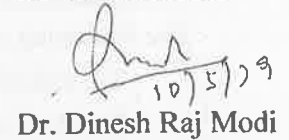 10/5/29
Dr. Dinesh Raj Modi